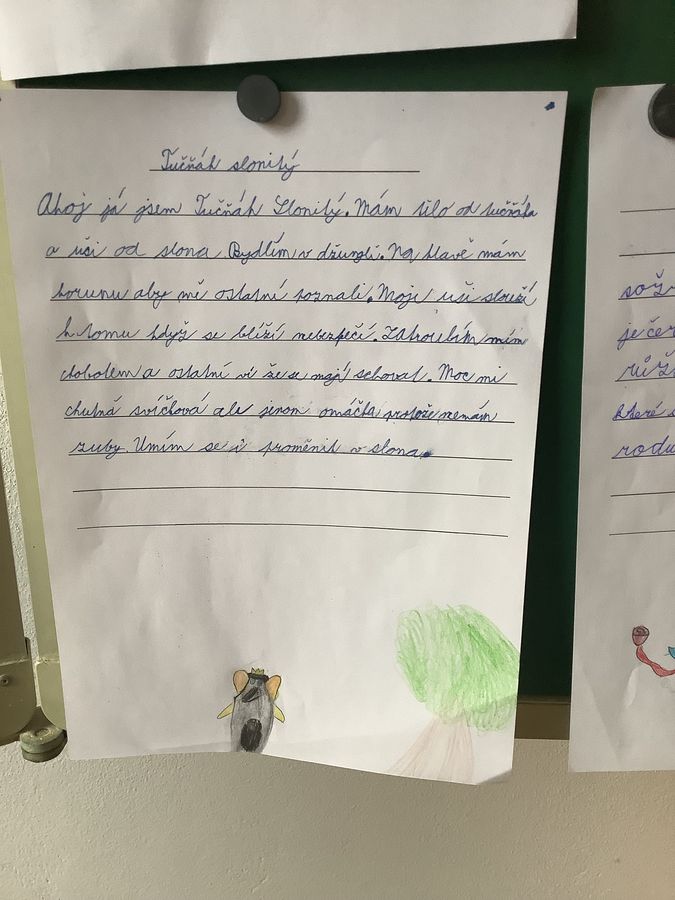 Tučňák slonitý
Ahoj já jsem Tučňák Slonitý. Mám tělo od tučňáka
a uši od slona. Bydlím v džungli. Na hlavě mám
korunu aby mě ostatní poznali. Moje uši slouží
k tomu když se blíží nebezpečí. Zatroubím mím
chobotem a ostatní ví že se mají schovat. Moc mi
chutná svíčková ale jenom omáčka protože nemám
zuby. Umím se i proměnit v slona.
je čer
růž
které
rodu